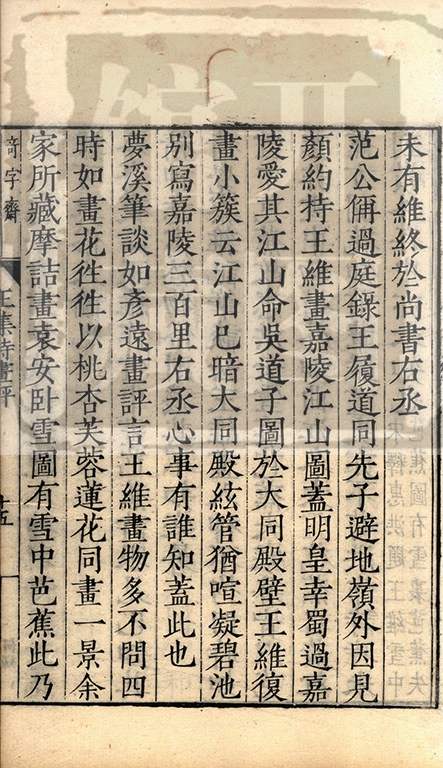 未有維終於尚書右丞
范公偁過庭錄王履道同先子避地嶺外因見
顏約持王維畫嘉陵江山圖蓋明皇幸蜀過嘉
陵愛其江山命吳道子圖於大同殿壁王維復
畫小簇云江山已暗大同殿絃管猶喧凝碧池
別寫嘉陵三百里右丞心事有誰知蓋此也
夢溪筆談如彥遠畫評言王維畫物多不問四
時如畫花徃徃以桃杏芙蓉蓮花同畫一景余
家所藏摩詰畫袁安臥雪圖有雪中芭蕉此乃
奇字齋
王集詩畫評
十五